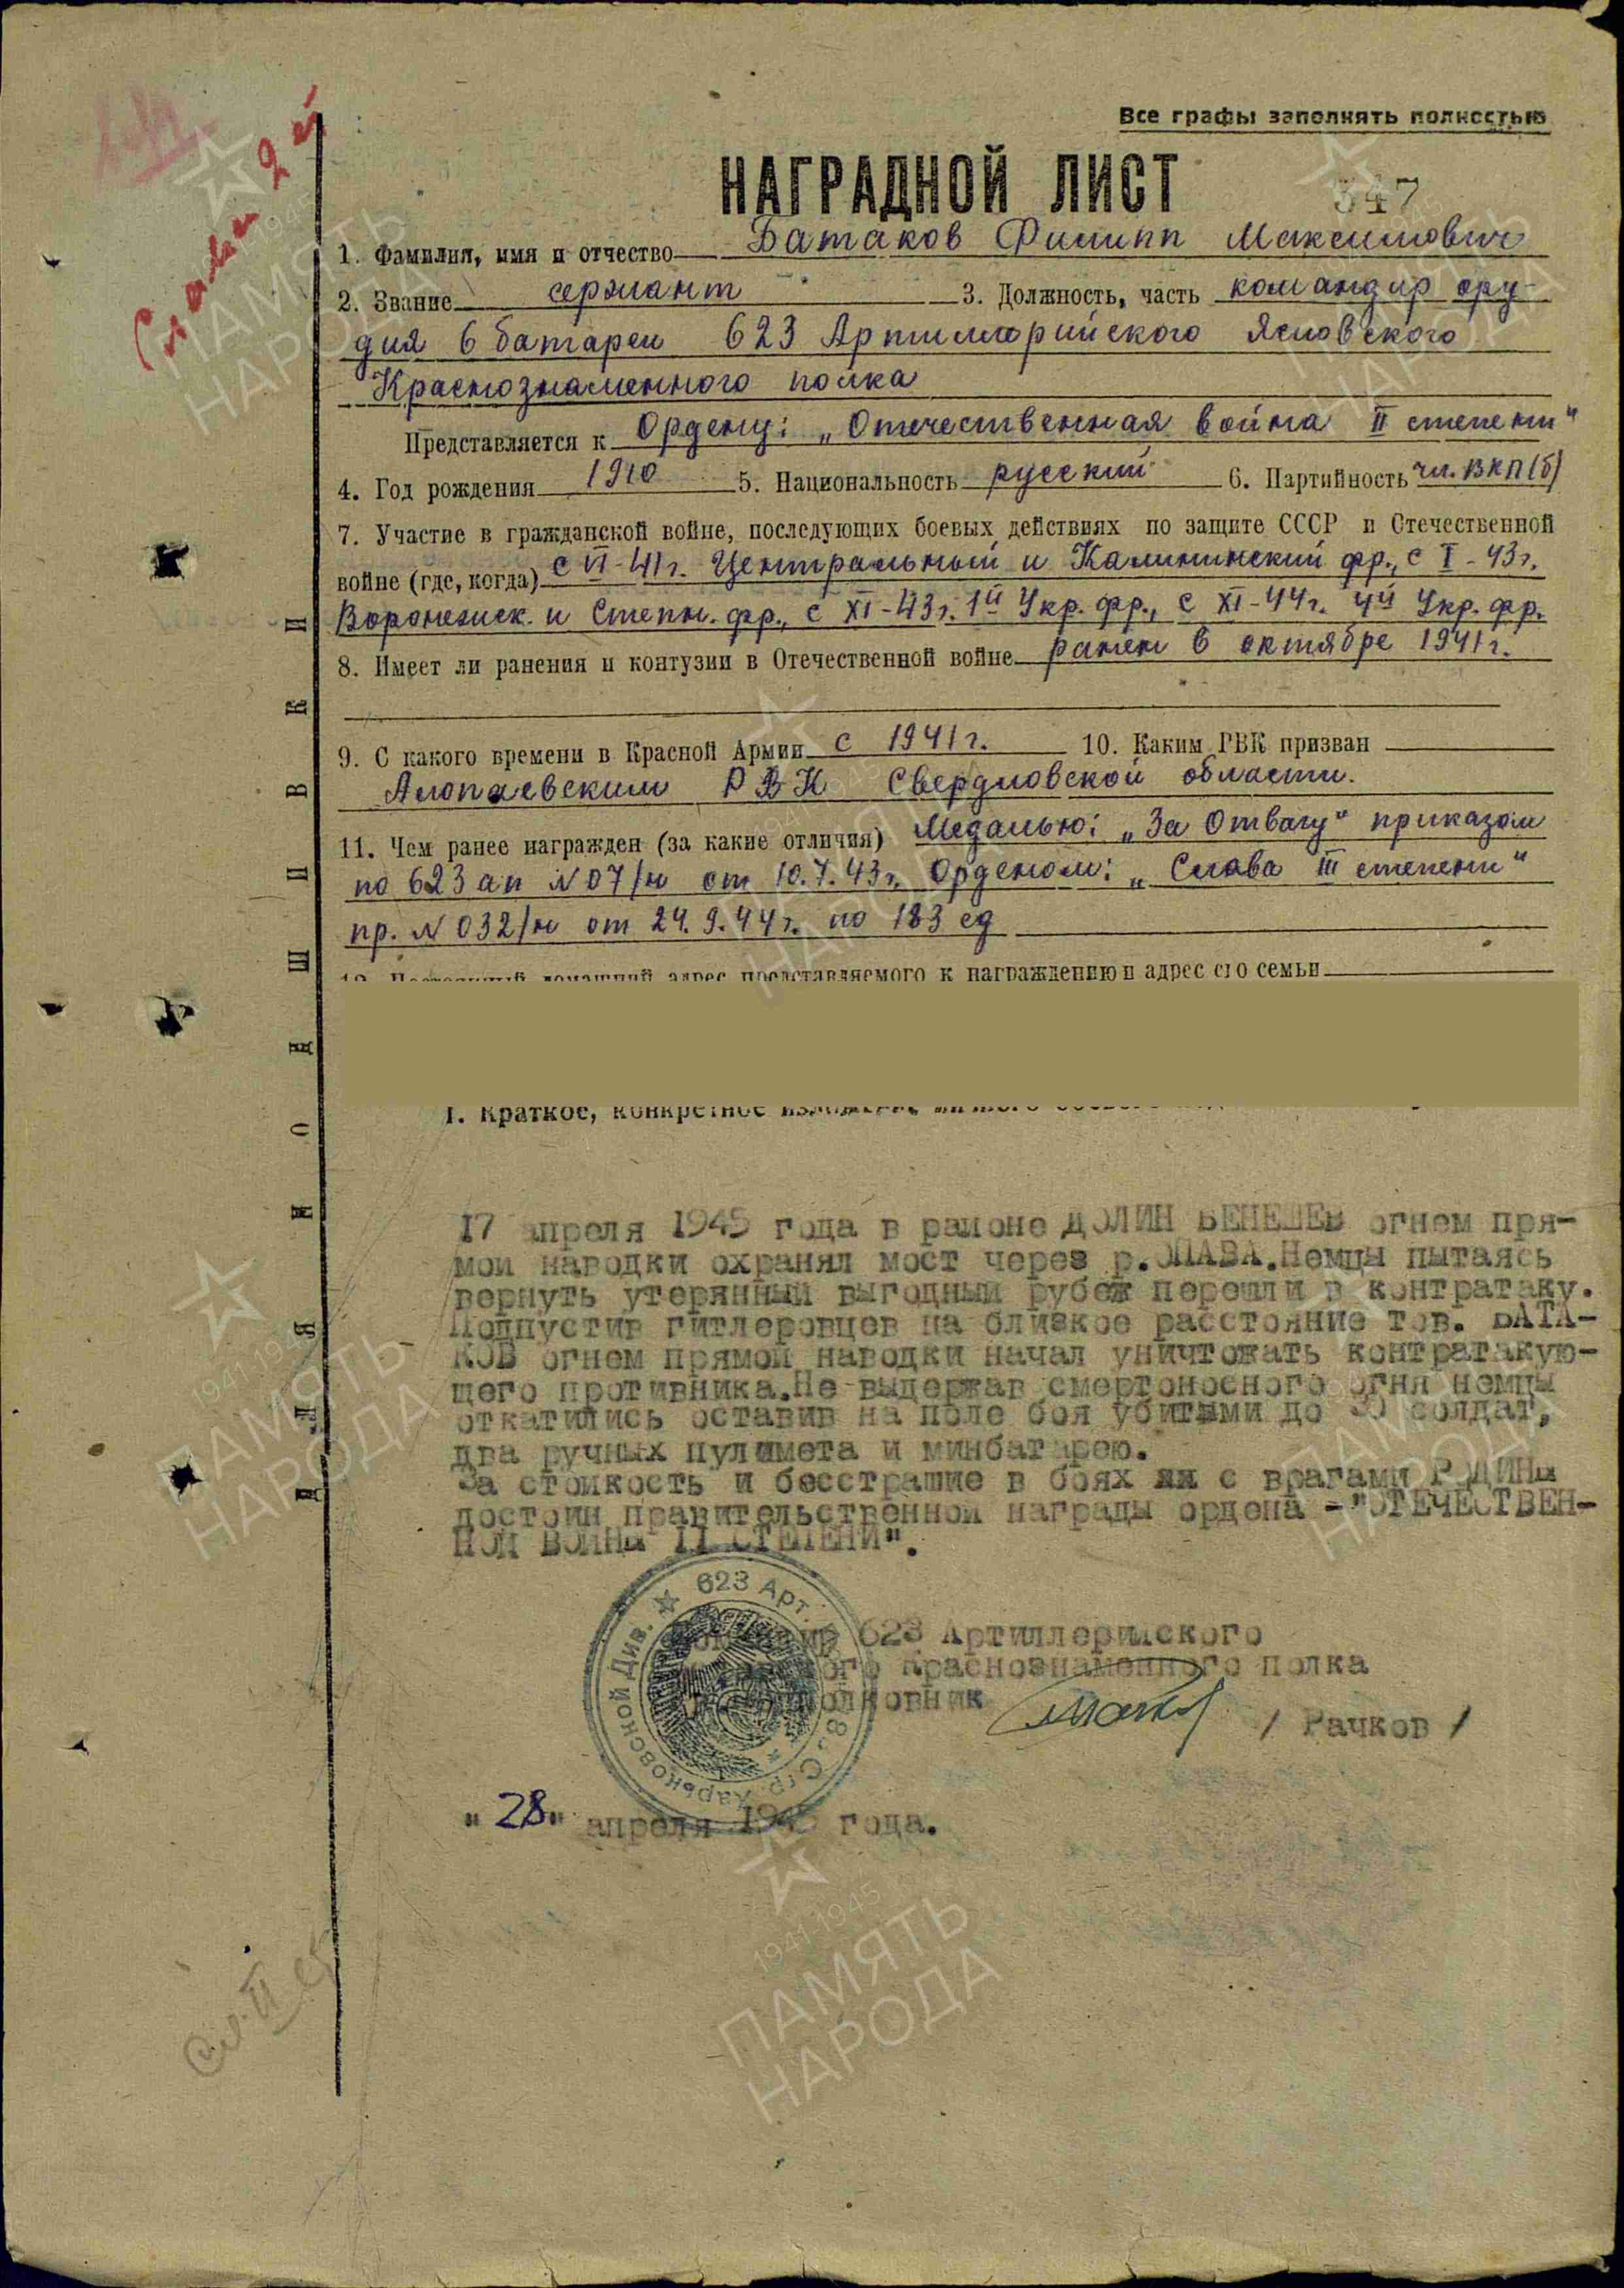 Все графы заполнять полностью
НАГРАДНОЙ ЛИСТ
347
Славы 2 й
1. Фамилия, имя и отчество Батаков Филипп Максимович
2. Звание сержант 3. Должность, часть командир ору-
дия 6 батареи 623 Артиллерийского Ясловского
Краснознаменного полка
Представляется к Ордену: „Отечественная война II степени"
4. Год рождения 1910 5. Национальность русский 6. Партийность чл. ВКП(б)
7. Участие в гражданской войне, последующих боевых действиях по защите СССР и Отечественной
войне (где, когда) с VI-41г. Центральный и Калининский фр., с I-43г.
Воронежск. и Степн. фр., с XI-43г. 1й Укр. фр., с XI-44г. 4й Укр. фр.
8. Имеет ли ранения и контузии в Отечественной войне ранен в октябре 1941г.
9. С какого времени в Красной Армии с 1941г. 10. Каким РВК призван
Алопаевским РВК Свердловской области.
11. Чем ранее награжден (за какие отличия) Медалью: „За Отвагу" приказом
по 623 ап №07/н от 10.7.43г. Орденом: „Слава III степени"
пр. №032/н от 24.9.44г. по 183 сд
12. Постоянный домашний адрес представляемого к награждению и адрес его семьи
1. Краткое, конкретное
ДЛЯ ПОДШИВКИ
17 апреля 1945 года в районе ДОЛИН БЕНЕШЕВ огнем пря-
мой наводки охранял мост через р.ОПАВА.Немцы пытаясь
вернуть утерянный выгодный рубеж перешли в контратаку.
Подпустив гитлеровцев на близкое расстояние тов. БАТА-
КОВ огнем прямой наводки начал уничтожать контратакую-
щего противника.Не выдержав смертоносного огня немцы
откатились оставив на поле боя убитыми до 30 солдат,
два ручных пулимета и минбатарею.
За стойкость и бесстрашие в боях с врагами РОДИНЫ
достоин правительственной награды ордена -"ОТЕЧЕСТВЕН-
НОЙ ВОЙНЫ II СТЕПЕНИ".
623 Арт. Стр. Харьковской Див.
Командир 623 Артиллерийского
ого Краснознаменного полка
полковник / Рачков /
"28" апреля 1945 года.
Сл. II ст
1941-1945
ПАМЯТЬ
НАРОДА